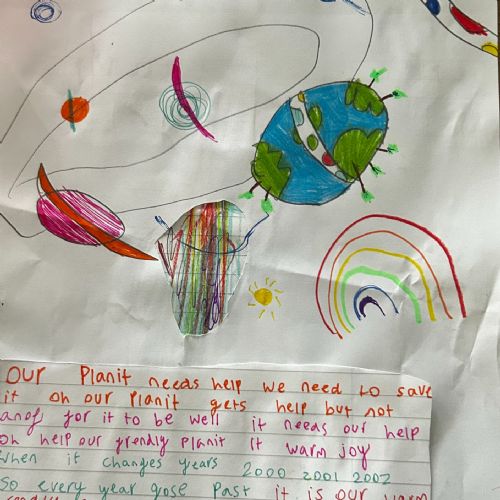 Our Planit needs help we need to save
it oh our Planit gets help but not
anof for it to be well it needs our help
oh help our frendly planit It warm joy
when it changes years 2000 2001 2002
So every year gose Past it is our warm